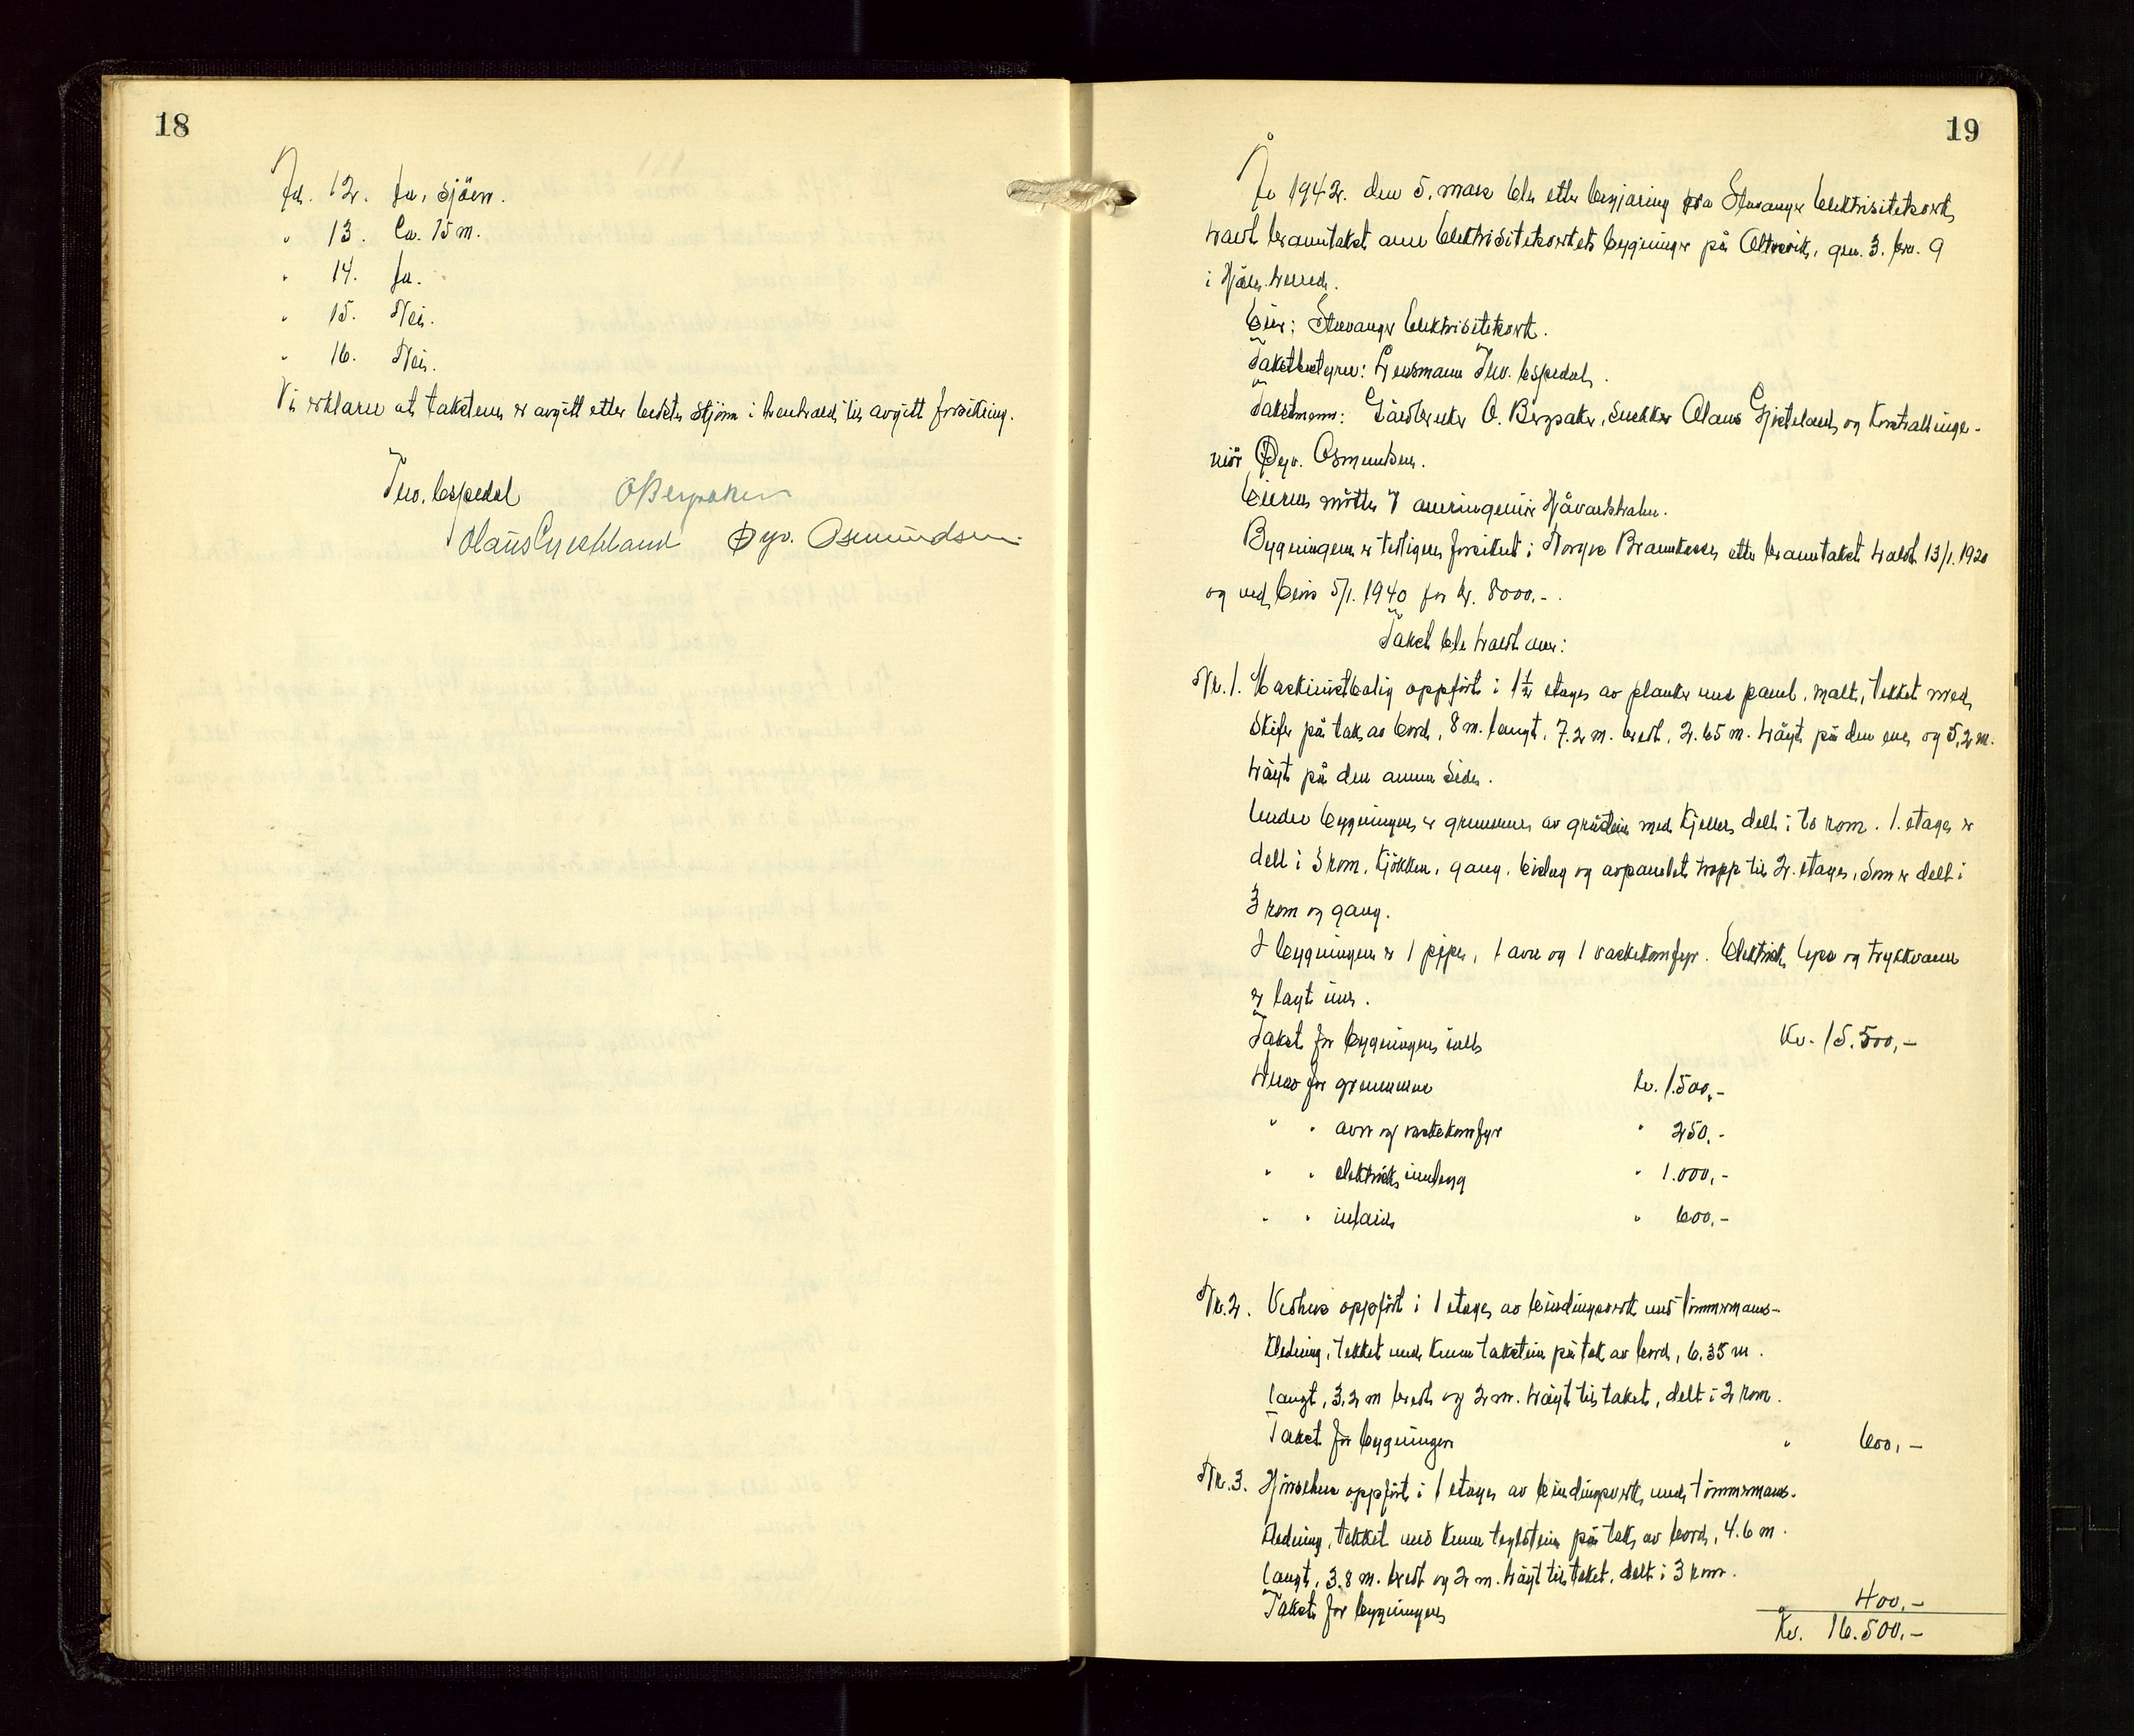 18
Ad. 12. Ja, sjöen.
" 13. Ca. 75 m.
" 14. Ja.
" 15. Nei.
" 16. Nei.
Vi erklærer at taksten er avgitt etter beste skjönn i henhold til avgitt forsikring.
Theo. Espedal O Bergsaker
Olaus Gjesteland Øyv. Osmundsen.
19
År 1942. den 5. mars ble etter begjæring fra Stavanger Elektrisitetsverk
holdt branntakst over Elektrisitetsverkets bygninger på Oltesvik, gnr. 3. bnr. 9
i Höle herred.
Eier: Stavanger Elektrisitetsverk.
Takstbestyrer: Lensmann Theo. Espedal.
Takstmenn: Gårdbruker O. Bergsaker, snekker Olaus Gjesteland og kontrollinge-
niör Øyv. Osmundsen.
Eieren mötte v/ overingeniör Håvardsholm.
Bygningen er tidligere forsikret i Norges Brannkasse etter branntakst holdt 13/1. 1920
og ved brev 5/1. 1940 for kr. 8000.-.
Takst ble holdt over:
Nr. 1. Maskinistbolig oppfört i 1½ etages av planker med panel, malt, tekket med
skifer på tak av bord, 8 m. langt, 7.2 m. bredt, 2.65 m. höyt på den ene og 5,2 m.
höyt på den annen side.
Under bygningen er grunnmur av gråstein med kjeller, delt i to rom. 1. etage er
delt i 3 rom, kjökken, gang, bislag og avpanelet trapp til 2. etage, som er delt i
3 rom og gang.
I bygningen er 1 pipe, 1 ovn og 1 vaskekomfyr. Elektrisk lys og trykkvann
er lagt inn.
Takst for bygningen ialt Kr. 15.500,-
Herav for grunnmur kr. 1.500,-
" " ovn og vaskekomfyr " 250.-
" " elektrisk innlegg " 1.000,-
" " inlaid " 600.-
Nr. 2. Vedhus oppfört i 1 etage av bindingsverk med tömmermans-
kledning, tekket med krum takstein på tak av bord, 6.35 m.
langt, 3.2 m bredt og 2 m. höyt til taket, delt i 2 rom.
Takst for bygningen " 600,-
Nr. 3. Hönsehus oppfört i 1 etage av bindingsverk med tömmermans-
kledning, tekket med krum teglstein på tak av bord, 4.6 m.
langt, 3.8 m. bredt og 2 m. höyt til taket, delt i 3 rom.
Takst for bygningen 400.-
Kr. 16.500.-